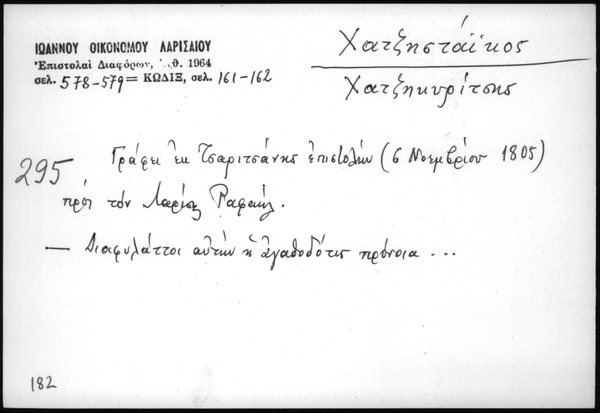 ΙΩΑΝΝΟΥ ΟΙΚΟΝΟΜΟΥ ΛΑΡΙΣΑΙΟΥ
Ἐπιστολαὶ Διαφόρων, ..θ. 1964
σελ. 578-579 = ΚΩΔΙΞ, σελ. 161-162
Χατζηστάϊκος
Χατζηκυρίτσης
295
Γράφει ἐκ Τσαριτσάνης ἐπιστολὴν (6 Νοεμβρίου 1805)
πρὸς τὸν Λαρίσης Ραφαήλ.
— Διαφυλάττοι αὐτὴν ἡ ἀγαθοδότις πρόνοια ...
182